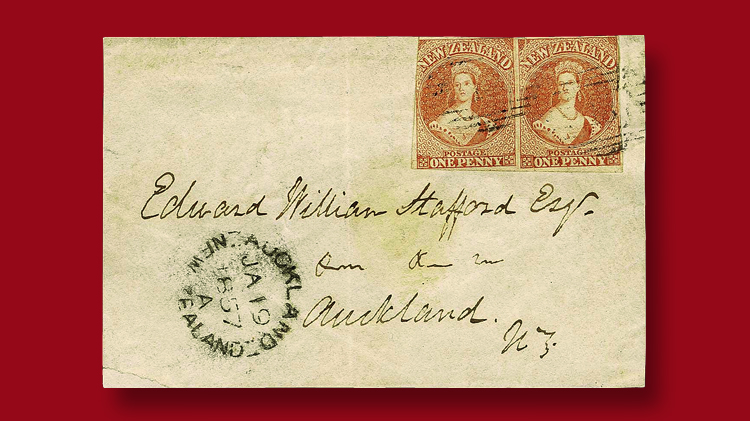 NEW ZEALAND
POSTAGE
ONE PENNY
NEW ZEALAND
POSTAGE
ONE PENNY
Edward William Stafford Esqr.
Auckland.
N Z.
AUCKLAND
NEW ZEALAND
JA 19
1857
A